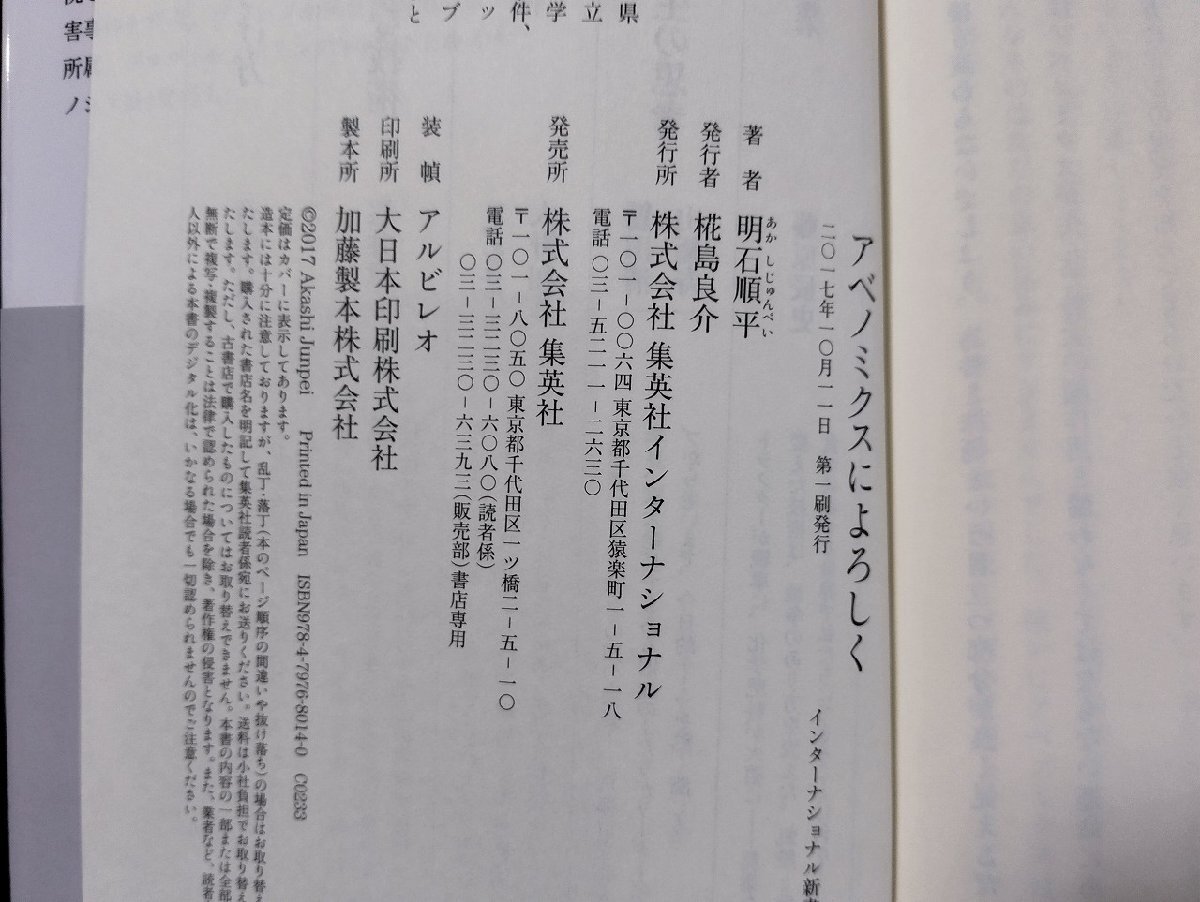 アベノミクスによろしく
インターナショナル新書
二〇一七年一〇月一一日 第一刷発行
著者 明石順平
あかしじゅんぺい
発行者 椛島良介
発行所 株式会社 集英社インターナショナル
〒一〇一-〇〇六四 東京都千代田区猿楽町一-五-一八
電話 〇三-五二一一-二六三〇
発売所 株式会社 集英社
〒一〇一-八〇五〇 東京都千代田区一ツ橋二-五-一〇
電話 〇三-三二三〇-六〇八〇(読者係)
〇三-三二三〇-六三九三(販売部)書店専用
装幀 アルビレオ
印刷所 大日本印刷株式会社
製本所 加藤製本株式会社
©2017 Akashi Junpei Printed in Japan ISBN978-4-7976-8014-0 C0233
定価はカバーに表示してあります。
造本には十分に注意しておりますが、乱丁・落丁(本のページ順序の間違いや抜け落ち)の場合はお取り替え
たします。購入された書店名を明記して集英社読者係宛にお送りください。送料は小社負担でお取り替え
たします。ただし、古書店で購入したものについてはお取り替えできません。本書の内容の一部または全部
無断で複写・複製することは法律で認められた場合を除き、著作権の侵害となります。また、業者など、読者
人以外による本書のデジタル化は、いかなる場合でも一切認められませんのでご注意ください。
県
立
学
件、
ッ
ブ
と
害
所